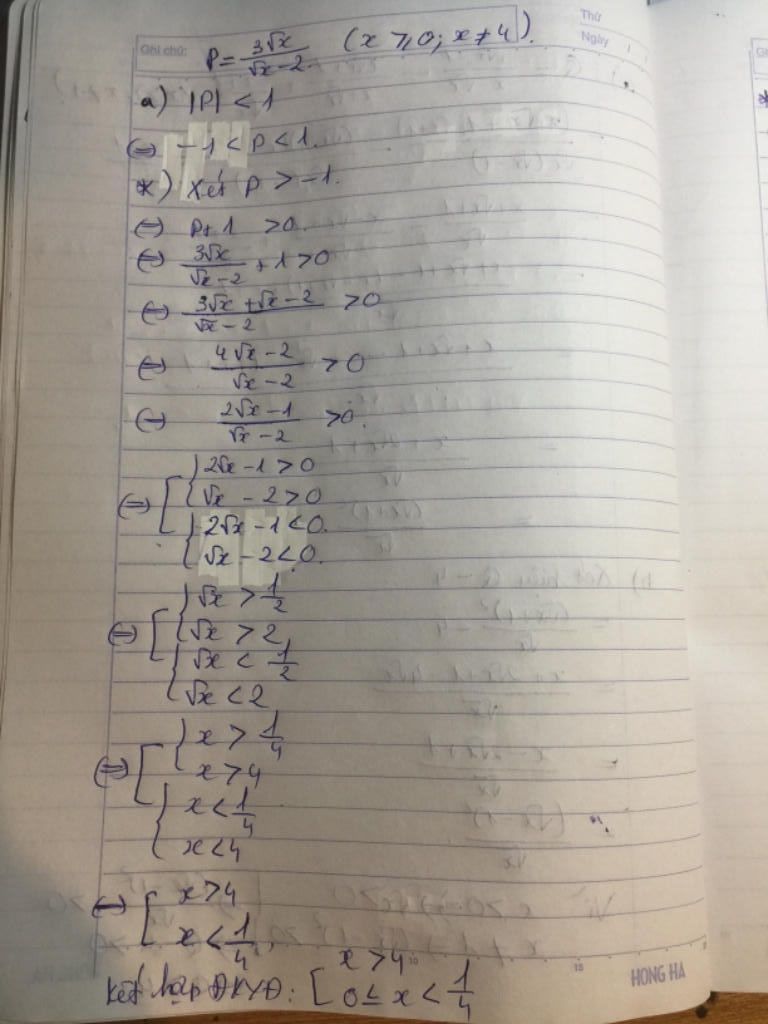 Thứ
Ghi chú: P = 3√x / (√x - 2) (x ≥ 0; x ≠ 4).
Ngày
a) |P| < 1
⇔ -1 < P < 1.
*) Xét P > -1.
⇔ P + 1 > 0.
⇔ 3√x / (√x - 2) + 1 > 0
⇔ (3√x + √x - 2) / (√x - 2) > 0
⇔ (4√x - 2) / (√x - 2) > 0
⇔ (2√x - 1) / (√x - 2) > 0.
{ 2√x - 1 > 0
⇔ [ √x - 2 > 0
{ 2√x - 1 < 0.
√x - 2 < 0.
{ √x > 1/2
⇔ [ √x > 2
{ √x < 1/2
√x < 2
{ x > 1/4
⇔ [ x > 4
{ x < 1/4
x < 4
⇔ [ x > 4
x < 1/4,
Kết hợp ĐKXĐ: [ x > 4
0 ≤ x < 1/4
HONG HA